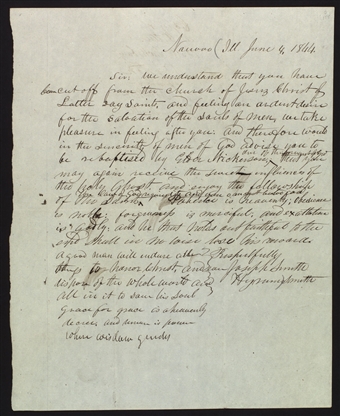 Nauvoo Ill June 4, 1844
Sir we understand that you have
been cut off from the Church of Jesus Christ of
Latter Day Saints, and feeling an ardent desire
for the Salvation of the Souls of Men, we take
pleasure in feeling after you. And therefore would
in the sincerity of men of God advise you to
be rebaptised by Elder Nickerson, that you
may again receive the influence of
the Holy Ghost and enjoy the fellowship
of the Saints. The law of God
is heavenly; obedience
is noble; forgiveness is merciful; and exaltation
is Godly; and he that holds out faithful to the
end shall in no wise lose his reward.
A good man will endure all Respectfully
things to honor Christ, and even Joseph Smith
dispose of the whole world and Hyrum Smith
all in it to save his Soul
Grace for grace is a heavenly
decree and union is power
where wisdom guides